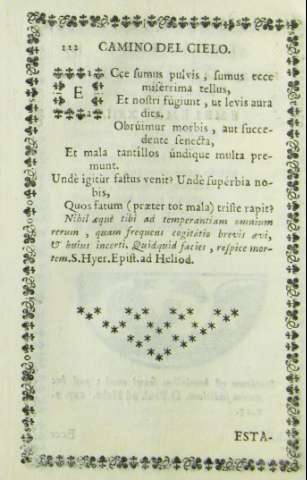 112 CAMINO DEL CIELO.
ECce sumus pulvis, sumus ecce
miserrima tellus,
Et nostri fugiunt, ut levis aura
dies.
Obruimur morbis, aut succe-
dente senecta,
Et mala tantillos úndique multa pre-
munt.
Undè igitùr fastus venit? Undè supérbia no-
bis,
Quos fatum (præter tot mala) triste rapit?
Nihil æquè tibi ad temperantiam omnium
rerum, quam frequens cogitatio brevis ævi,
& huius incerti. Quidquid facies, respice mor-
tem. S. Hyer. Epist. ad Heliod.
ESTA-